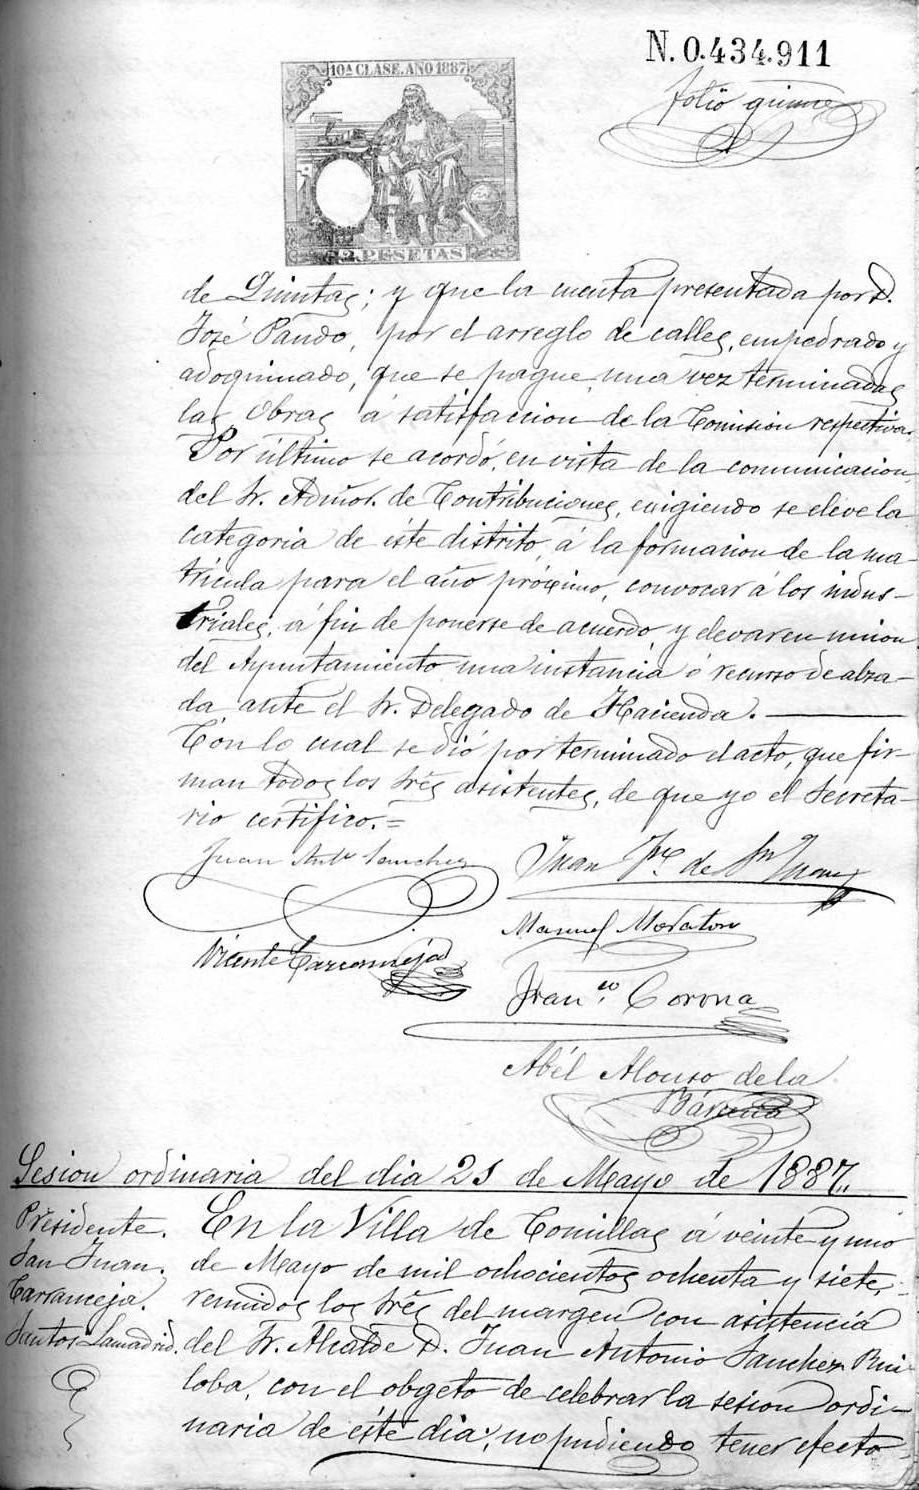 N. 0.434.911
folio quince
10ª CLASE. AÑO 1887
2 PESETAS
de Quintas; y que la cuenta presentada por D.
José Pando, por el arreglo de calles, empedrado y
adoquinado, que se pague una vez terminadas
las obras á satisfaccion de la Comision respectiva.
Por último se acordó, en vista de la comunicacion
del Sr. Admor. de Contribuciones, exigiendo se eleve la
categoria de éste distrito, á la formacion de la ma-
tricula para el año próximo, convocar á los indus-
triales, á fin de ponerse de acuerdo, y elevar en union
del Ayuntamiento una instancia ó recurso de alza-
da ante el Sr. Delegado de Hacienda.
Con lo cual se dió por terminado el acto, que fir-
man todos los Srēs asistentes, de que yo el Secreta-
rio certifico.=
Juan Antº Sanchez
Juan Fre de Sn Juan
Manuel Moraton
Vicente Carranceja
Franco Corona
Abél Alonso de la
Bárcena
Sesion ordinaria del dia 21 de Mayo de 1887,,
Presidente.
San Juan.
Carranceja.
Santos Lamadrid.
En la Villa de Comillas á veinte y uno
de Mayo de mil ochocientos ochenta y siete,
reunidos los Srēs del margen con asistencia
del Sr. Alcalde D. Juan Antonio Sanchez Rui-
loba, con el obgeto de celebrar la sesion ordi-
naria de éste dia, no pudiendo tener efecto